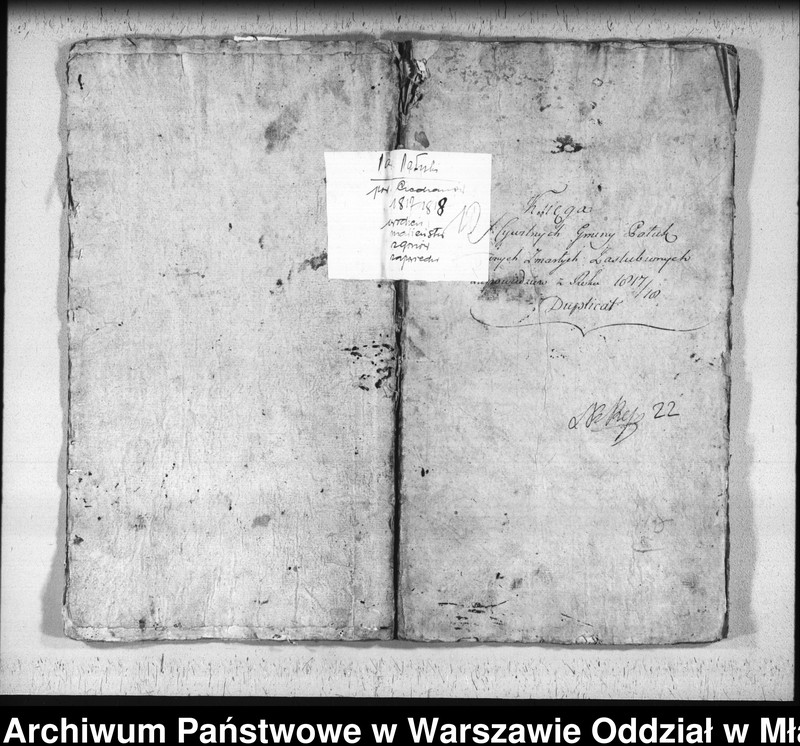 Par. Pałuki
pow. Ciechanów
1817/1818
urodzeń
małżeństw
zgonów
zapowiedzi
Księga
Akt Cywilnych Gminy Pałuk
Zmarłych Zaslubionych
z Roku 1817/18
Duplicat
22
Archiwum Państwowe w Warszawie Oddział w Mła